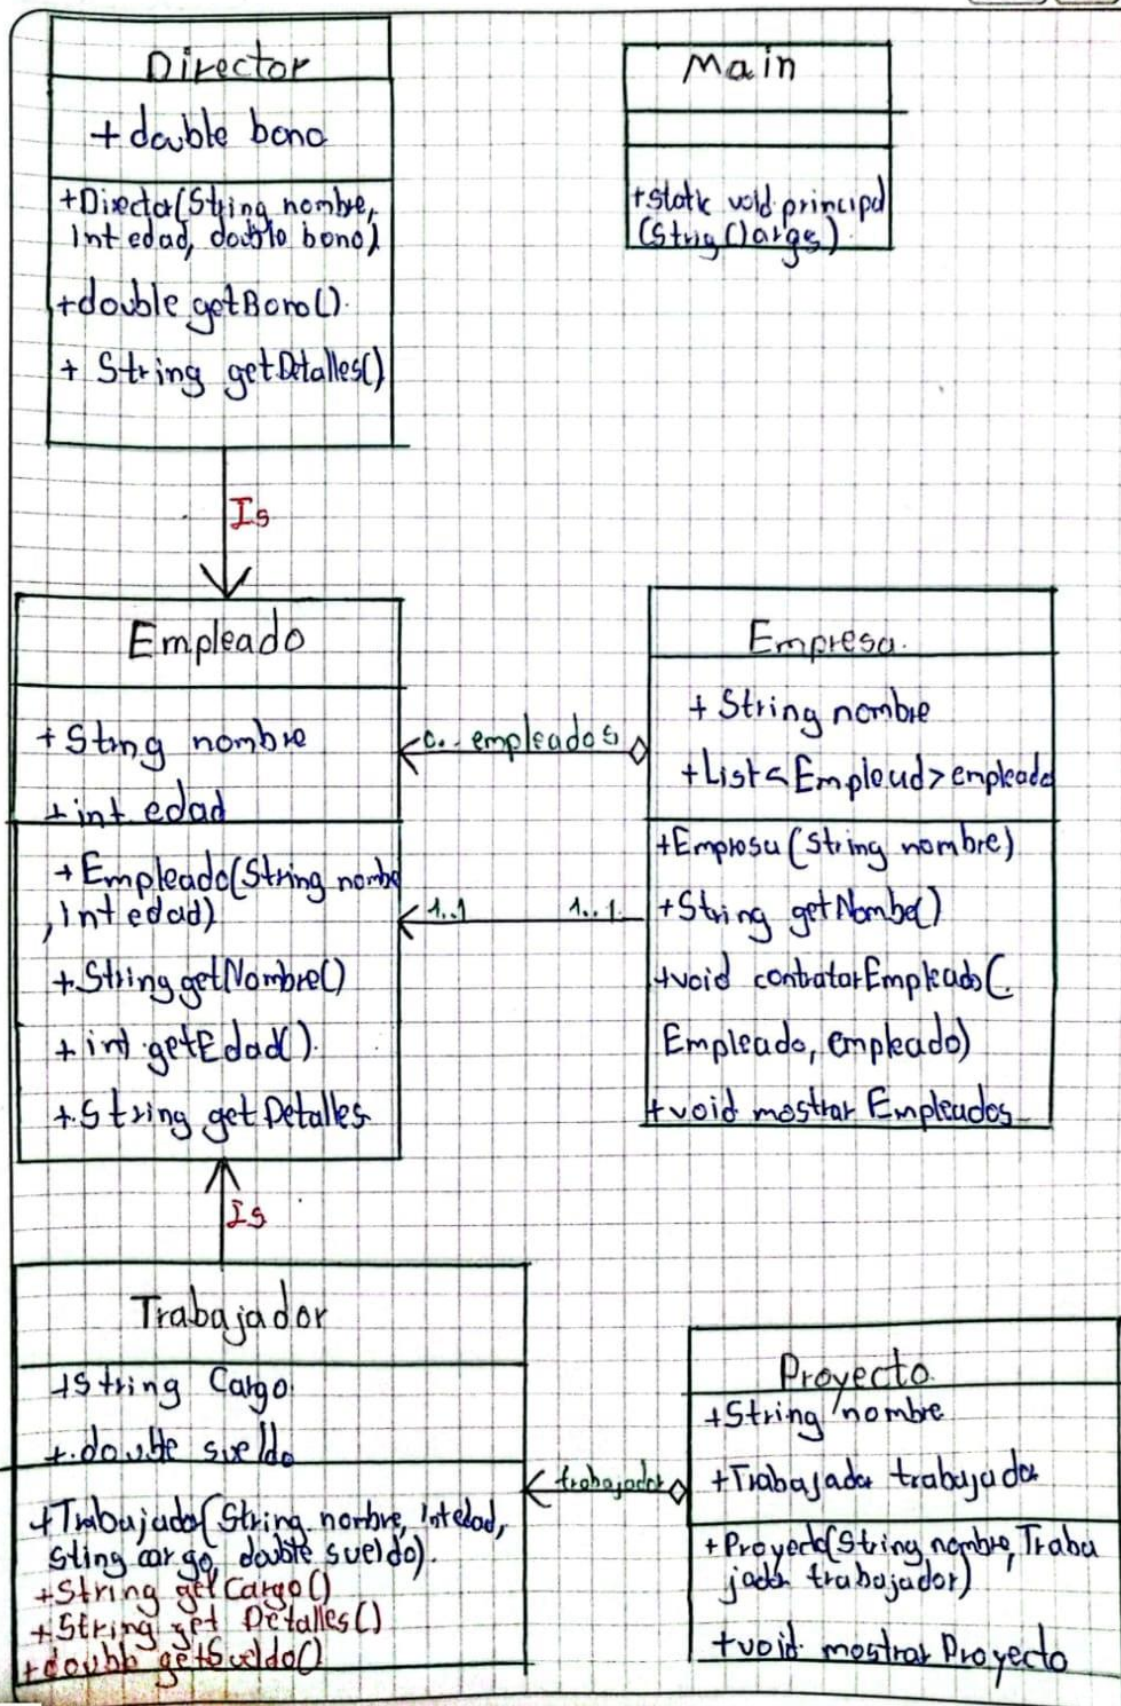 Director
+ double bono
+Director(String nombre,
int edad, double bono)
+double getBono()
+ String getDetalles()
Main
+static void principal
(String[] args)
Is
Empleado
+ String nombre
+ int edad
+ Empleado(String nombre
, int edad)
+ String getNombre()
+ int getEdad()
+ String getDetalles
0.. empleados
1..1 1..1
Empresa
+ String nombre
+List<Empleud> empleado
+Empresa (String nombre)
+String getNombe()
+void contratarEmpleado(
Empleado, empleado)
+void mostrar Empleados
Is
Trabajador
+String Cargo
+ double sueldo
+Trabajador(String nombre, int edad,
String cargo, double sueldo).
+String getCargo()
+String get Detalles()
+double getSueldo()
trabajador
Proyecto
+String nombre
+Trabajador trabajador
+Proyecto(String nombre, Traba
jador trabajador)
+void mostrar Proyecto